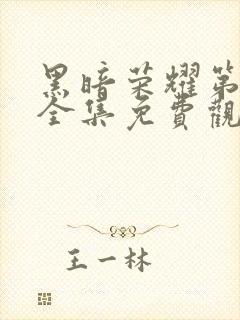 黑暗荣耀第
全集免費觀
王一林